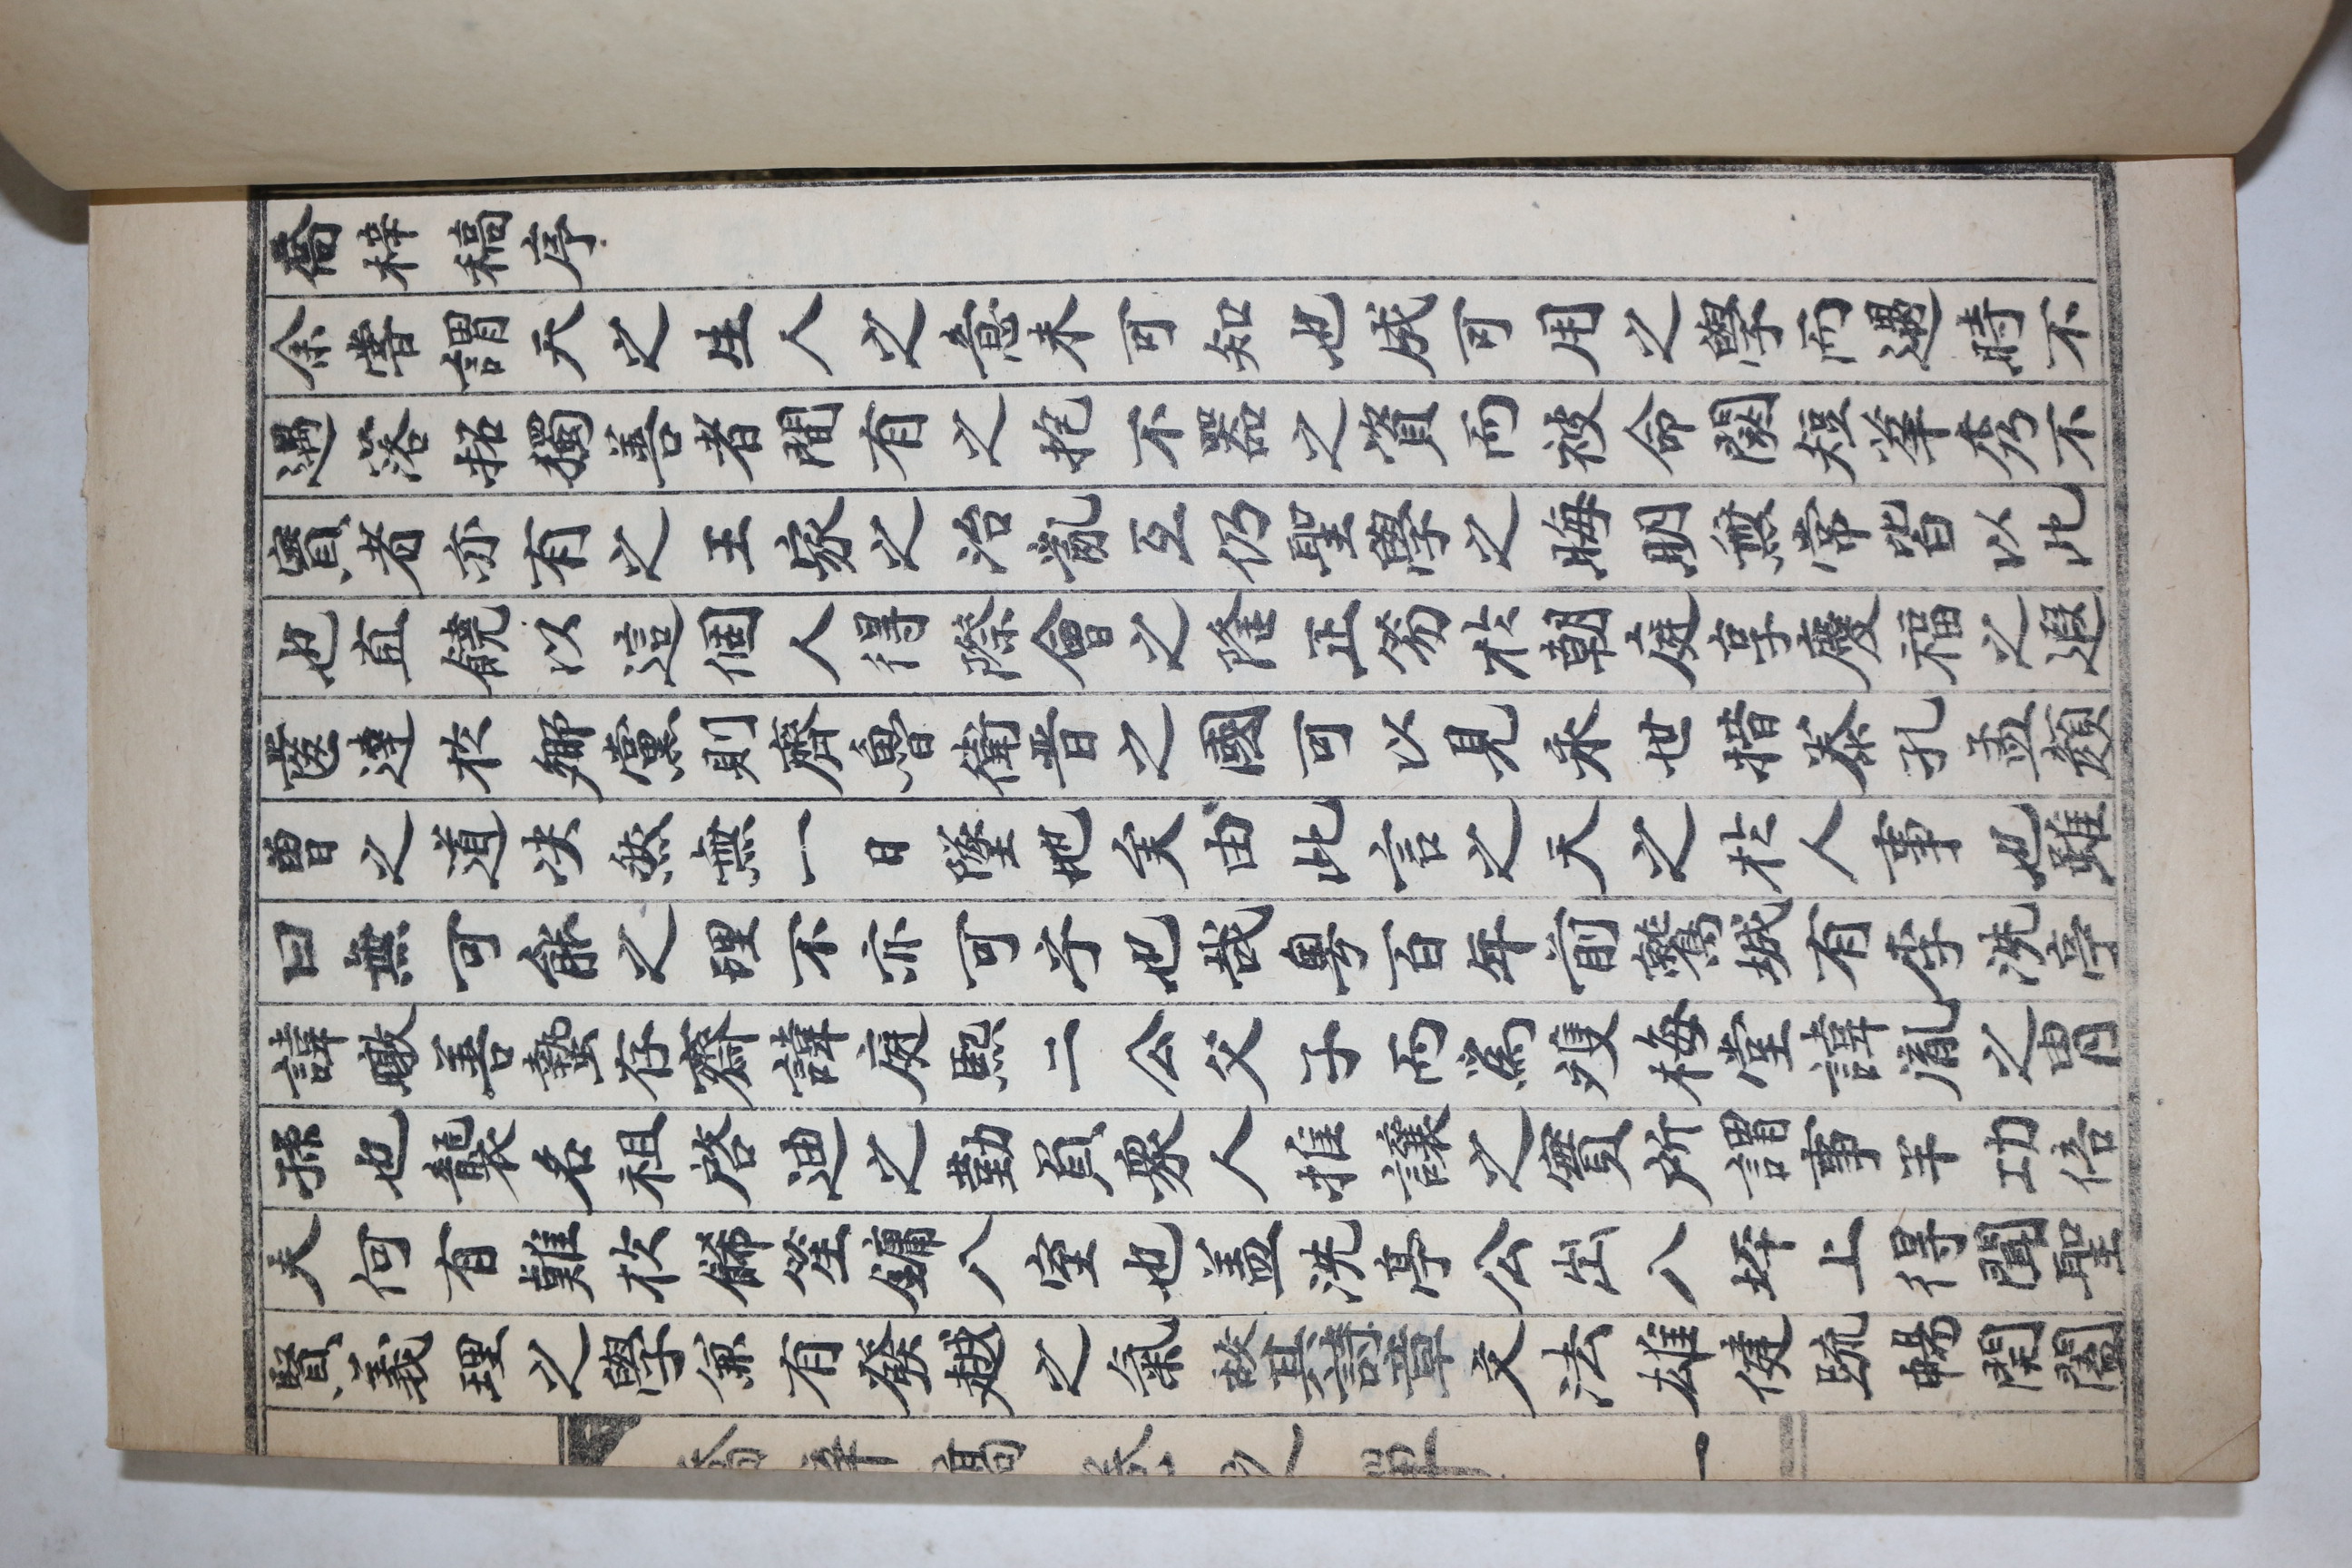 喬梓稿序
余嘗謂天之生人之意未可知也成可用之學而遇時不
遇落拓獨善者間有之抱不器之資而被命闕短苯秀不
實者亦有之王家之治亂互仍聖學之晦明無常皆以此
也直饒以這個人得際會之隆正笏於朝庭享慶福之遐
蓌達於鄉黨則齊魯衛晋之國可以見永世措泰孔孟顔
曾之道决然無一日墜地矣由此言之天之於人事也雖
曰無可能之理不亦可乎也哉粤百年前鷲城有李洗亭
諱暾善蟄存齋諱庭熙二公父子而爲雙梅堂諱胤之冑
孫也襲名祖啓迪之勤負衆人推讓之實所謂事半功倍
夫何有難於餙笙鏞八室也盖洗亭公出八坪上得聞聖
賢義理之學兼有發越之氣故其詩章文法雄健疏暢開闔
喬梓稿 卷之單 一